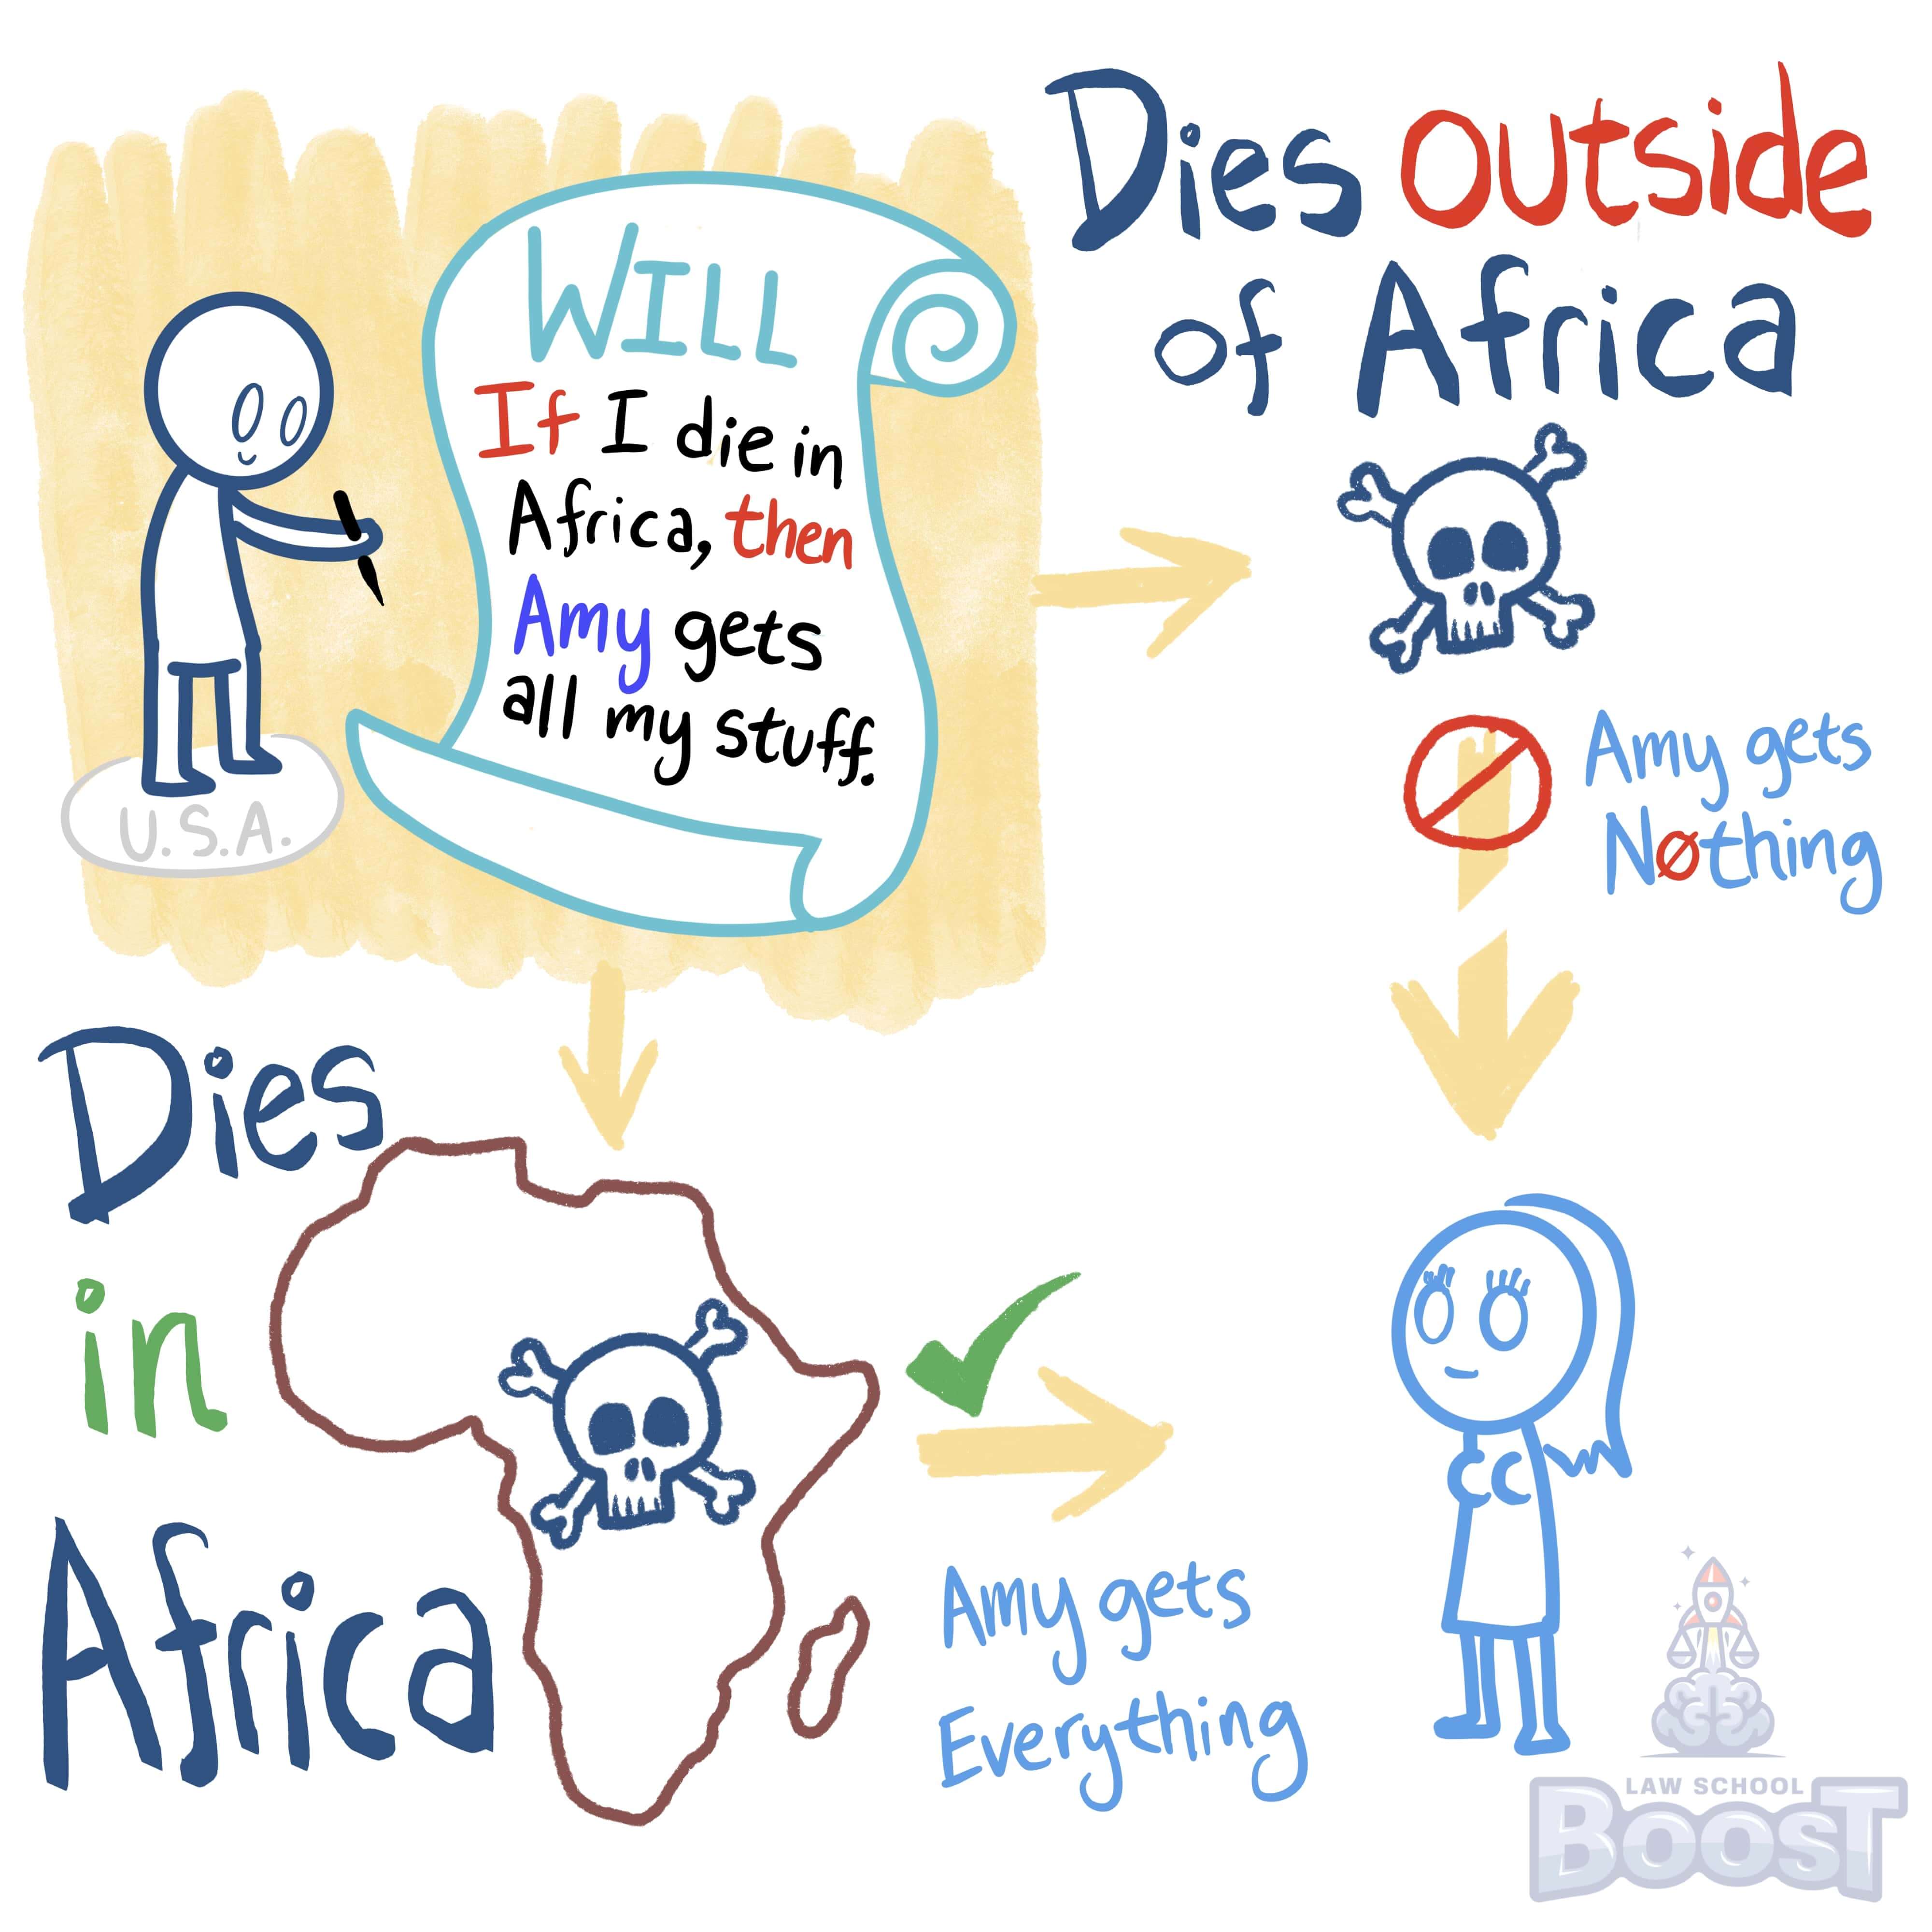 WILL
If I die in
Africa, then
Amy gets
all my stuff.
U.S.A.
Dies Outside
of Africa
Amy gets
Nothing
Dies
in
Africa
Amy gets
Everything
LAW SCHOOL
BOOST